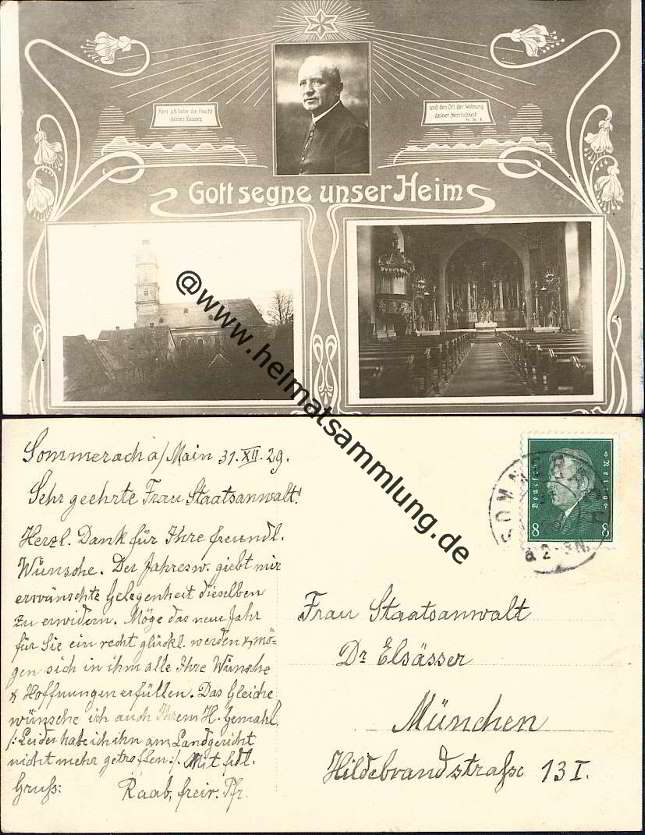 Herr ich liebe die Pracht
deines Hauses
und den Ort der Wohnung
deiner Herrlichkeit
Gott segne unser Heim
@www.heimatsammlung.de
Sommerach a/Main 31.XII.29.
Sehr geehrte Frau Staatsanwalt!
Herzl. Dank für Ihre freundl.
Wünsche. Der Jahresw. giebt mir
erwünschte Gelegenheit dieselben
zu erwidern. Möge das neue Jahr
für Sie ein recht glückl. werden & mö-
gen sich in ihm alle Ihre Wünsche
& Hoffnungen erfüllen. Das Gleiche
wünsche ich auch Ihrem H. Gemahl,
/: Leider habe ich ihn am Landgericht
nicht mehr getroffen :/. Mit
Gruss:
Raab, freir. Pfr.
Deutsches Reich
8 8
Frau Staatsanwalt
Dr Elsässer
München
Hildebrandstraße 13 I.